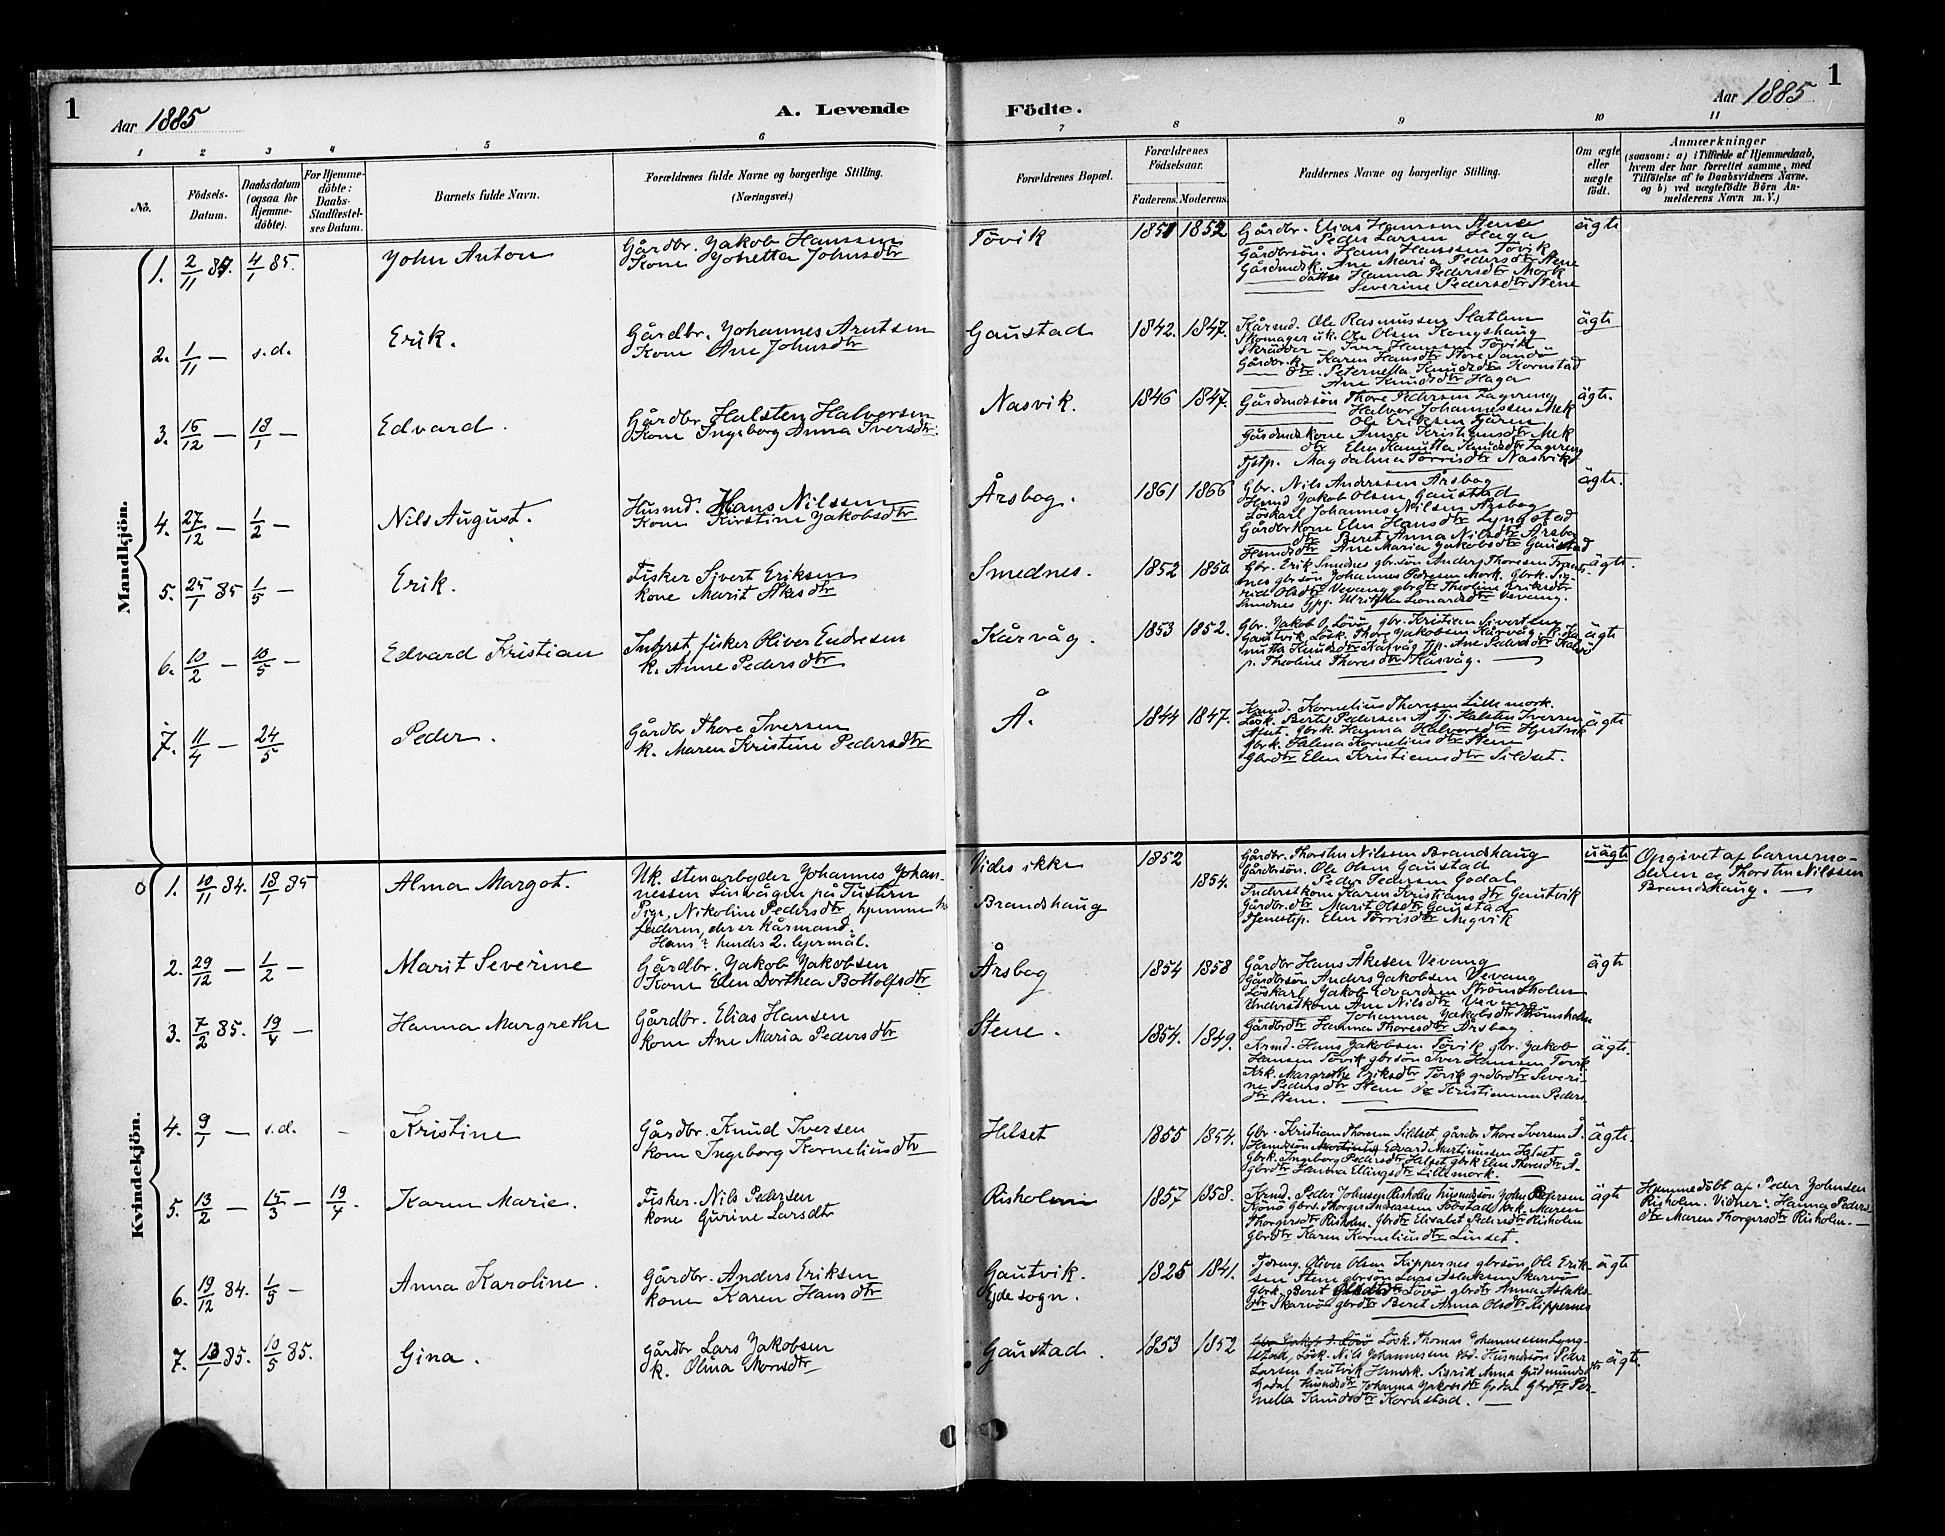 1
Aar 1885
A. Levende
Födte.
Aar 1885
1
1 2 3 4 5 6 7 8 9 10 11
No.
Födsels-
Datum.
Daabsdatum
(ogsaa for
Hjemme-
döbte).
For Hjemme-
döbte:
Daabs-
Stadfestel-
ses Datum.
Barnets fulde Navn.
Forældrenes fulde Navne og borgerlige Stilling.
(Næringsvei.)
Forældrenes Bopæl.
Forældrenes
Födselsaar.
Faderens. Moderens.
Faddernes Navne og borgerlige Stilling.
Om ægte
eller
uægte
födt.
Anmærkninger
(saasom: a) i Tilfælde af Hjemmedaab,
hvem der har forrettet samme, med
Tilföielse af to Daabsvidners Navne,
og b) ved uægtefödte Börn An-
melderens Navn m. V.)
Mandkjön.
1. 2/11 84. 4/1 85.
John Anton
Gårdbr. Jakob Hanssen
Kone Joketta Johnsdtr
Tövik
1851 1852
Gårdbr. Elias Hanssen Stene
Peder Larsen Haga
Gårdbrsön. Hans Hanssen Tövik
Gårdmdsk. Ane Maria Pedersdtr Stene
datter Hanna Pedersdtr Mork
Severine Pedersdtr Stene
ägte
2. 1/11 — s.d.
Erik.
Gårdbr. Johannes Arntsen
Kone Ane Johnsdtr
Gaustad
1842. 1847.
Kårmd. Ole Rasmussen Slatlem
Skomager uk. Ole Olsen Kongshaug
Skrädder Iver Hanssen Tövik
Gårdbr.k. Karen Hansdtr Store Sandö
dtr. Peternella Knudsdtr Kornstad
Ane Knudsdtr Haga
ägte
3. 16/12 — 18/1 —
Edvard.
Gårdbr Halsten Halvorsen
Kone Ingeborg Anna Iversdtr.
Nasvik.
1846 1847.
Gårdmdssön Thore Pedersen Fagereng
Halvor Johannessen Mek
Ole Eriksen
Gårdmdskone Anna Kristiansdtr Mek
dtr Elen Knudsdtr Fagereng
Tjstp. Magdalena Törrisdtr Nasvik
ägte.
4. 27/12 — 1/2 —
Nils August.
Husmd. Hans Nilssen
Kone Kirstine Jakobsdtr
Årsbog.
1861 1866
Gbr. Nils Anderssen Årsbog
Hsmd Jakob Olsen Gaustad
Löskarl Johannes Nilsen Årsbog
Gårdbrkone Elen Hansdtr Lyngstad
dtr Beret Anna Nilsdtr Årsbog
Hsmdsdtr Ane Maria Jakobsdtr Gaustad
ägte.
5. 25/1 85 1/5 —
Erik.
Fisker Sivert Eriksen
kone Marit Åkesdtr
Smednes.
1852 1850
Gbr. Erik Smednes gbr.sön Anders Thoresen
nes gbrsön Johannes Pedersen Mork. Gbrk. Sig-
rid Olsdtr Vevang gbrdtr Theoline Eriksdtr
Smednes tjpg. Leonardsdtr Vevang.
ägte.
6. 10/2 — 10/5 —
Edvard Kristian
Inderst, fisker Oliver Endresen
k. Anne Pedersdtr
Kårvåg.
1853 1852.
Gbr. Jakob O. Lövö, gbr. Kristian Sivertsen
Gautvik, Lösk. Thore Jakobsen Kårvåg
Knudsdtr Kårvåg tjp. Ane Pedersdtr
p. Theoline Thoresdtr Kårvåg.
ägte
7. 11/4 — 24/5
Peder.
Gårdbr Thore Iversen
k. Maren Kristine Pedersdtr
Å.
1844 1847.
Kmd. Kornelius Thoresen Lillemork.
Lösk. Bertel Pedersen Å Tj. Halsten Iversen
Gbrk. Hanna Halvorsdtr Hjertvik
Gbrk. Helena Korneliusdtr Stene
Gbrdtr Elen Kristiansdtr Sildset.
ägte
Kvindekjön.
1. 10/11 84. 18/1 85
Alma Margot.
Uk. stenarbeider Johannes Johan-
nessen Linvågen på Tustern
Pige, Nikoline Pedersdtr, hjemme h
faderen, der er kårmand.
Hans? hendes 2. lejermål.
Vides ikke
Brandshaug
1852
1854.
Gårdbr. Thorsten Nilssen Brandshaug
Gårdbrsön. Ole Olsen Gaustad
Peder Pedersen Godal
Inderstkone Karen Kristiansdtr Gautvik
Gårdbr.dtr Marit Olsdtr Gaustad
Tjenestep. Elen Törrisdtr Augvik
uägte
Opgivet af barnemo-
deren og Thorsten Nilssen
Brandshaug. —
2. 29/12 — 1/2 —
Marit Severine
Gårdbr. Jakob Jakobsen
Kone Elen Dorthea Bottolfsdtr
Årsbog
1854 1858
Gårdbr Hans Åkesen Vevang
Gårdbrsön Anders Jakobsen Vevang
Löskarl Jakob Edvardsen Strömsholm
Inderstkone Ane Nilsdtr Vevang
Johanna Jakobsdtr Strömsholm
Gårdbrdtr Hanna Thoresdtr Årsbog.
ägte
3. 7/2 85. 19/4 —
Hanna Margrethe
Gårdbr. Elias Hansen
kone Ane Maria Pedersdtr
Stene.
1854. 1849.
Hans Jakobsen Tövik gbr. Jakob
Hansen Tövik gbrsön Iver Hanssen Tövik
Margrethe Eriksdtr Tövik grdbrdtr Severi-
ne Pedersdtr Stene do Kristianna Peders-
dtr Stene.
ägte.
4. 9/1 — s.d. -
Kristine
Gårdbr. Knud Iversen
kone Ingeborg Korneliusdtr
Helset
1855 1854.
Gbr. Kristian Thoresen Sildset, gårdbr Thore Iversen Å.
Husmdssön Edvard Martinussen Helset
Gbrk. Ingeborg Pedersdtr Helset gbrk Elen Thoresdtr Å.
gbrdtr Hanna Ellingsdtr Lillemork.
ägte.
5. 13/2 — 15/3 — 19/4.
Karen Marie.
Fisker. Nils Pedersen
kone Gurine Larsdtr
Risholmen
1857 1858.
Krmd. Peder Johnsen Risholm husmdssön John Petersen
gbrs. Thorger Andersen Sobstad krk. Maren
Thorgersdtr Risholm. gbrdtr Elisabet Pedersdtr Risholm
Gbrdtr Karen Korneliusdtr Linset.
ägte
Hjemmedöbt af Peder Johnsen
Risholm. Vidner: Hanna Peders-
dtr Maren Thorgersdtr Risholm. —
6. 19/12 84. 1/5 —
Anna Karoline.
Gårdbr. Anders Eriksen
kone Karen Hansdtr
Gautvik.
Ejde sogn.
1825 1841.
Oliver Olsen Kippernes gbrsön, Ole Erik-
sen Stene gbrsön Lars Aslaksen Skarvö
Gbrk. Beret Lövö gbrdtr Anna Aslaks-
dtr Skarvö gbrdtr Beret Anna Olsdtr Kippernes
ägte
7. 13/1 85. 10/5 85.
Gina.
Gårdbr Lars Jakobsen
k. Olina Mornsdtr
Gaustad.
1853 1852
Lösk. Thomas Johannessen Lyng-
stad, Lösk. Nils Johannesen Husmdssön Peder
Larsen Gautvik Hsmdk. Sigrid Anna Gudmundsdtr
Godal Husmdsdtr Johanna Jakobsdtr Godal Gbrdtr Per-
nella Knudsdtr Kornstad. —
ägte.